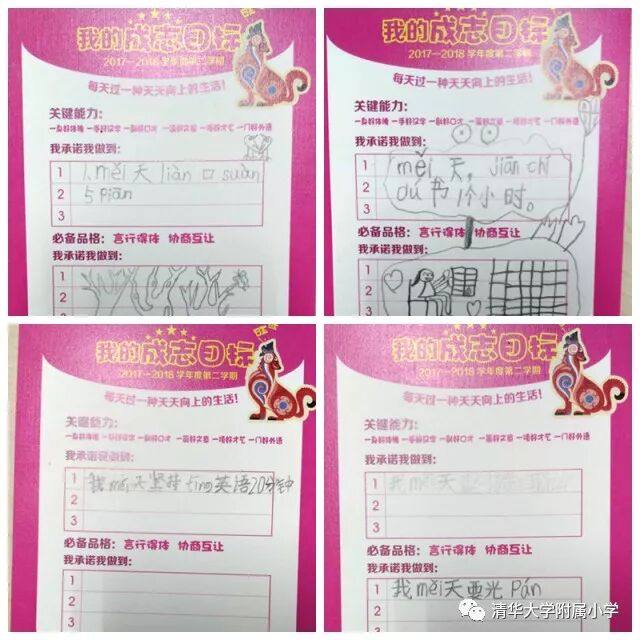 我的成志目标
2017—2018 学年度第二学期
每天过一种天天向上的生活！
关键能力：
一身好体魄 一手好汉字 一副好口才 一篇好文章 一项好才艺 一门好外语
我承诺我做到：
1 1.měi 天 liàn 口 suàn
2 5 piān
3
必备品格： 言行得体 协商互让
我承诺我做到：
1
2
我的成志目标
2017—2018 学年度第二学期
每天过一种天天向上的生活！
关键能力：
一身好体魄 一手好汉字 一副好口才 一篇好文章 一项好才艺 一门好外语
我承诺我做到：
1 měi 天，jiān chí
2 dú 书 1个小时。
3
必备品格： 言行得体 协商互让
我承诺我做到：
1
2
3
我的成志目标
2017—2018 学年度第二学期
每天过一种天天向上的生活！
关键能力：
一身好体魄 一手好汉字 一副好口才 一篇好文章 一项好才艺 一门好外语
我承诺我做到：
1 我 měi 天坚持 tīng 英语20分钟
2
3
必备品格： 言行得体 协商互让
我承诺我做到：
1
2
我的成志目标
2017—2018 学年度第二学期
每天过一种天天向上的生活！
关键能力：
一身好体魄 一手好汉字 一副好口才 一篇好文章 一项好才艺 一门好外语
我承诺我做到：
1 我 měi 天
2
3
必备品格： 言行得体 协商互让
我承诺我做到：
1 我 měi 天要光 Pán
2
清华大学附属小学